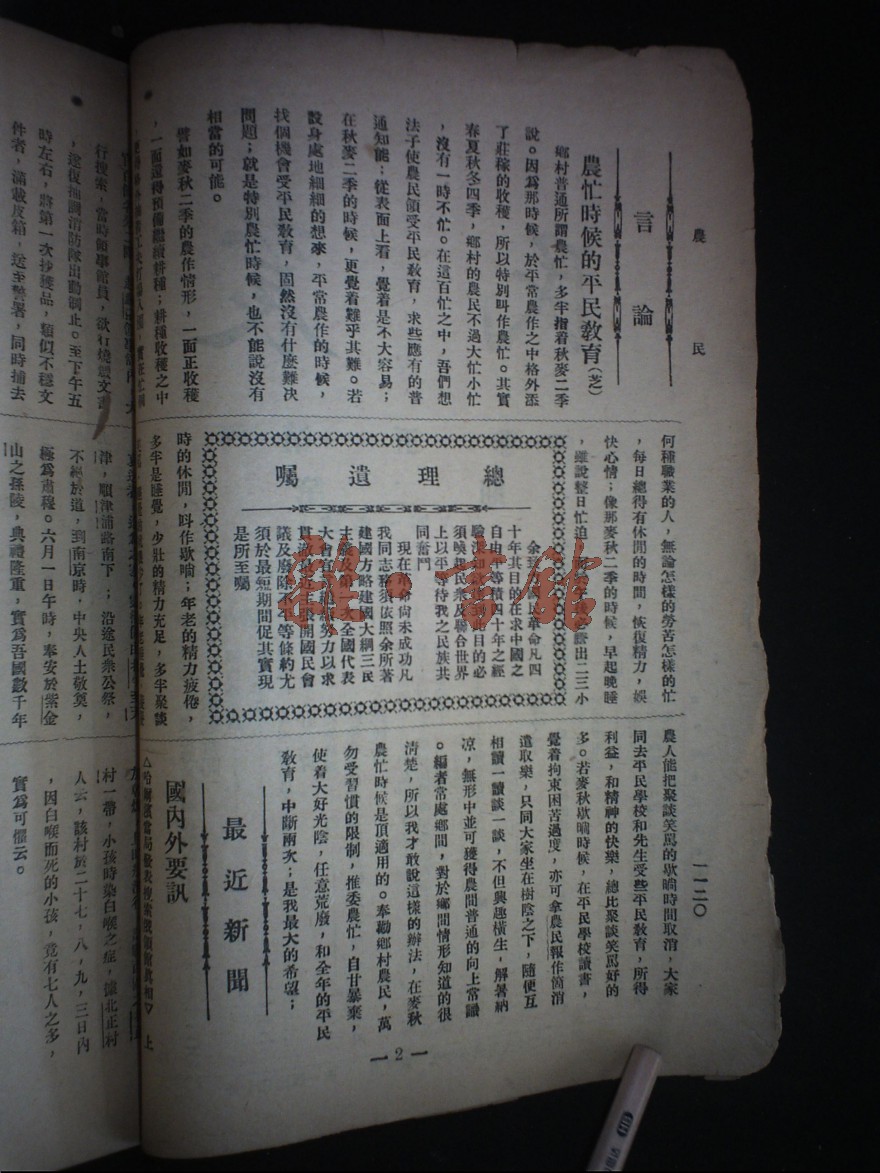 農民
一一二〇
言論
農忙時候的平民教育(芝)
鄉村普通所謂農忙，多半指着秋麥二季
說。因爲那時候，於平常農作之中格外添
了莊稼的收穫，所以特別叫作農忙。其實
春夏秋冬四季，鄉村的農民不過大忙小忙
，沒有一時不忙。在這百忙之中，吾們想
法子使農民領受平民教育，求些應有的普
通知能；從表面上看，覺着是不大容易；
在秋麥二季的時候，更覺着難乎其難。若
設身處地細細的想來，平常農作的時候，
找個機會受平民教育，固然沒有什麼難決
問題；就是特別農忙時候，也不能說沒有
相當的可能。
譬如麥秋二季的農作情形，一面正收穫
，一面還得預備繼續耕種；耕種收穫之中
何種職業的人，無論怎樣的勞苦怎樣的忙
，每日總得有休閒的時間，恢復精力，娛
快心情；像那麥秋二季的時候，早起晚睡
，雖說整日忙迫，出二三小
總理遺囑
余致力國民革命凡四
十年其目的在求中國之
自由平等積四十年之經
驗深知欲達到此目的必
須喚起民衆及聯合世界
上以平等待我之民族共
同奮鬥
現在革命尚未成功凡
我同志務須依照余所著
建國方略建國大綱三民
主義及第一次全國代表
大會宣言繼續努力以求
貫澈最近主張開國民會
議及廢除不平等條約尤
須於最短期間促其實現
是所至囑
時的休閒，叫作歇晌；年老的精力疲倦，
多半是睡覺，少壯的精力充足，多半聚談
農人能把聚談笑罵的歇晌時間取消，大家
同去平民學校和先生受些平民教育，所得
利益，和精神的快樂，總比聚談笑罵好的
多。若麥秋歇晌時候，在平民學校讀書，
覺着拘束困苦過度，亦可拿農民報作箇消
遣取樂，只同大家坐在樹陰之下，隨便互
相讀一讀談一談，不但興趣橫生，解暑納
凉，無形中並可獲得農間普通的向上常識
。編者常處鄉間，對於鄉間情形知道的很
清楚，所以我才敢說這樣的辦法，在麥秋
農忙時候是頂適用的。奉勸鄉村農民，萬
勿受習慣的限制，推委農忙，自甘暴棄，
使着大好光陰，任意荒廢，和全年的平民
教育，中斷兩次；是我最大的希望；
最近新聞
國內外要訊
△哈爾濱當局發表搜索俄領館真相▽ 上
2
行搜索，當時領事館員，欲行燒燬文書
，遂復捕調消防隊出動制止。至下午五
時左右，將第一次抄獲品，類似不穩文
件者，滿載皮箱，送至警署，同時捕去
津，順津浦路南下；沿途民衆公祭，
不絕於道，到南京時，中央人士敬奠，
極爲肅穆。六月一日午時，奉安於紫金
山之孫陵，典禮隆重，實爲吾國數千年
村一帶，小孩時染白喉之症，據北正村
人云，該村於二十七，八，九，三日內
，因白喉而死的小孩，竟有七人之多，
實爲可懼云。
HB